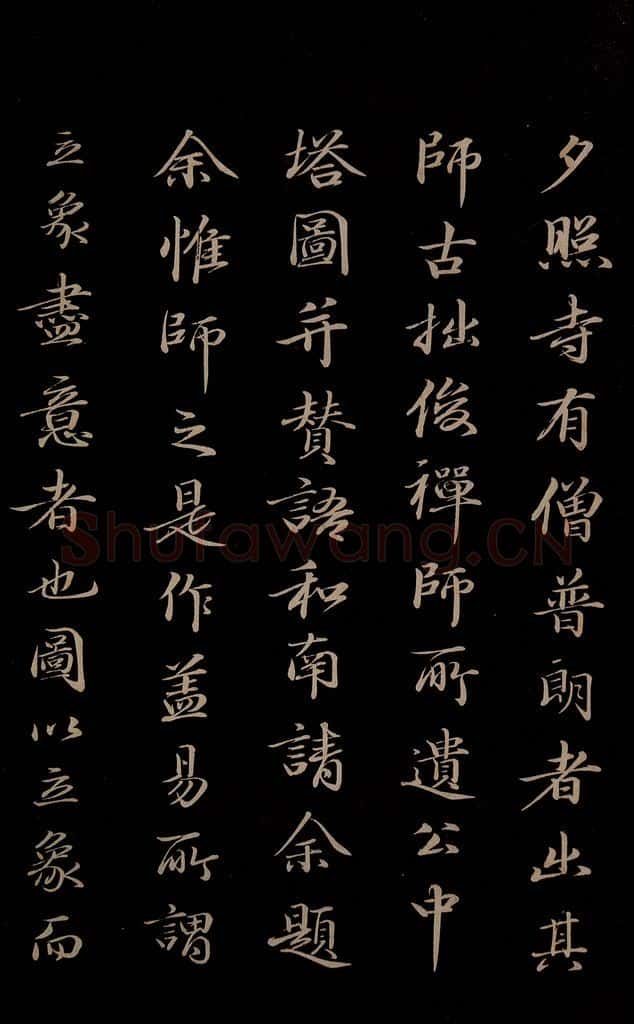 夕照寺有僧普朗者出其
師古拙俊禪師所遺公中
塔圖并贊語和南請余題
余惟師之是作盖易所謂
立象盡意者也圖以立象而
Shufawang.CN